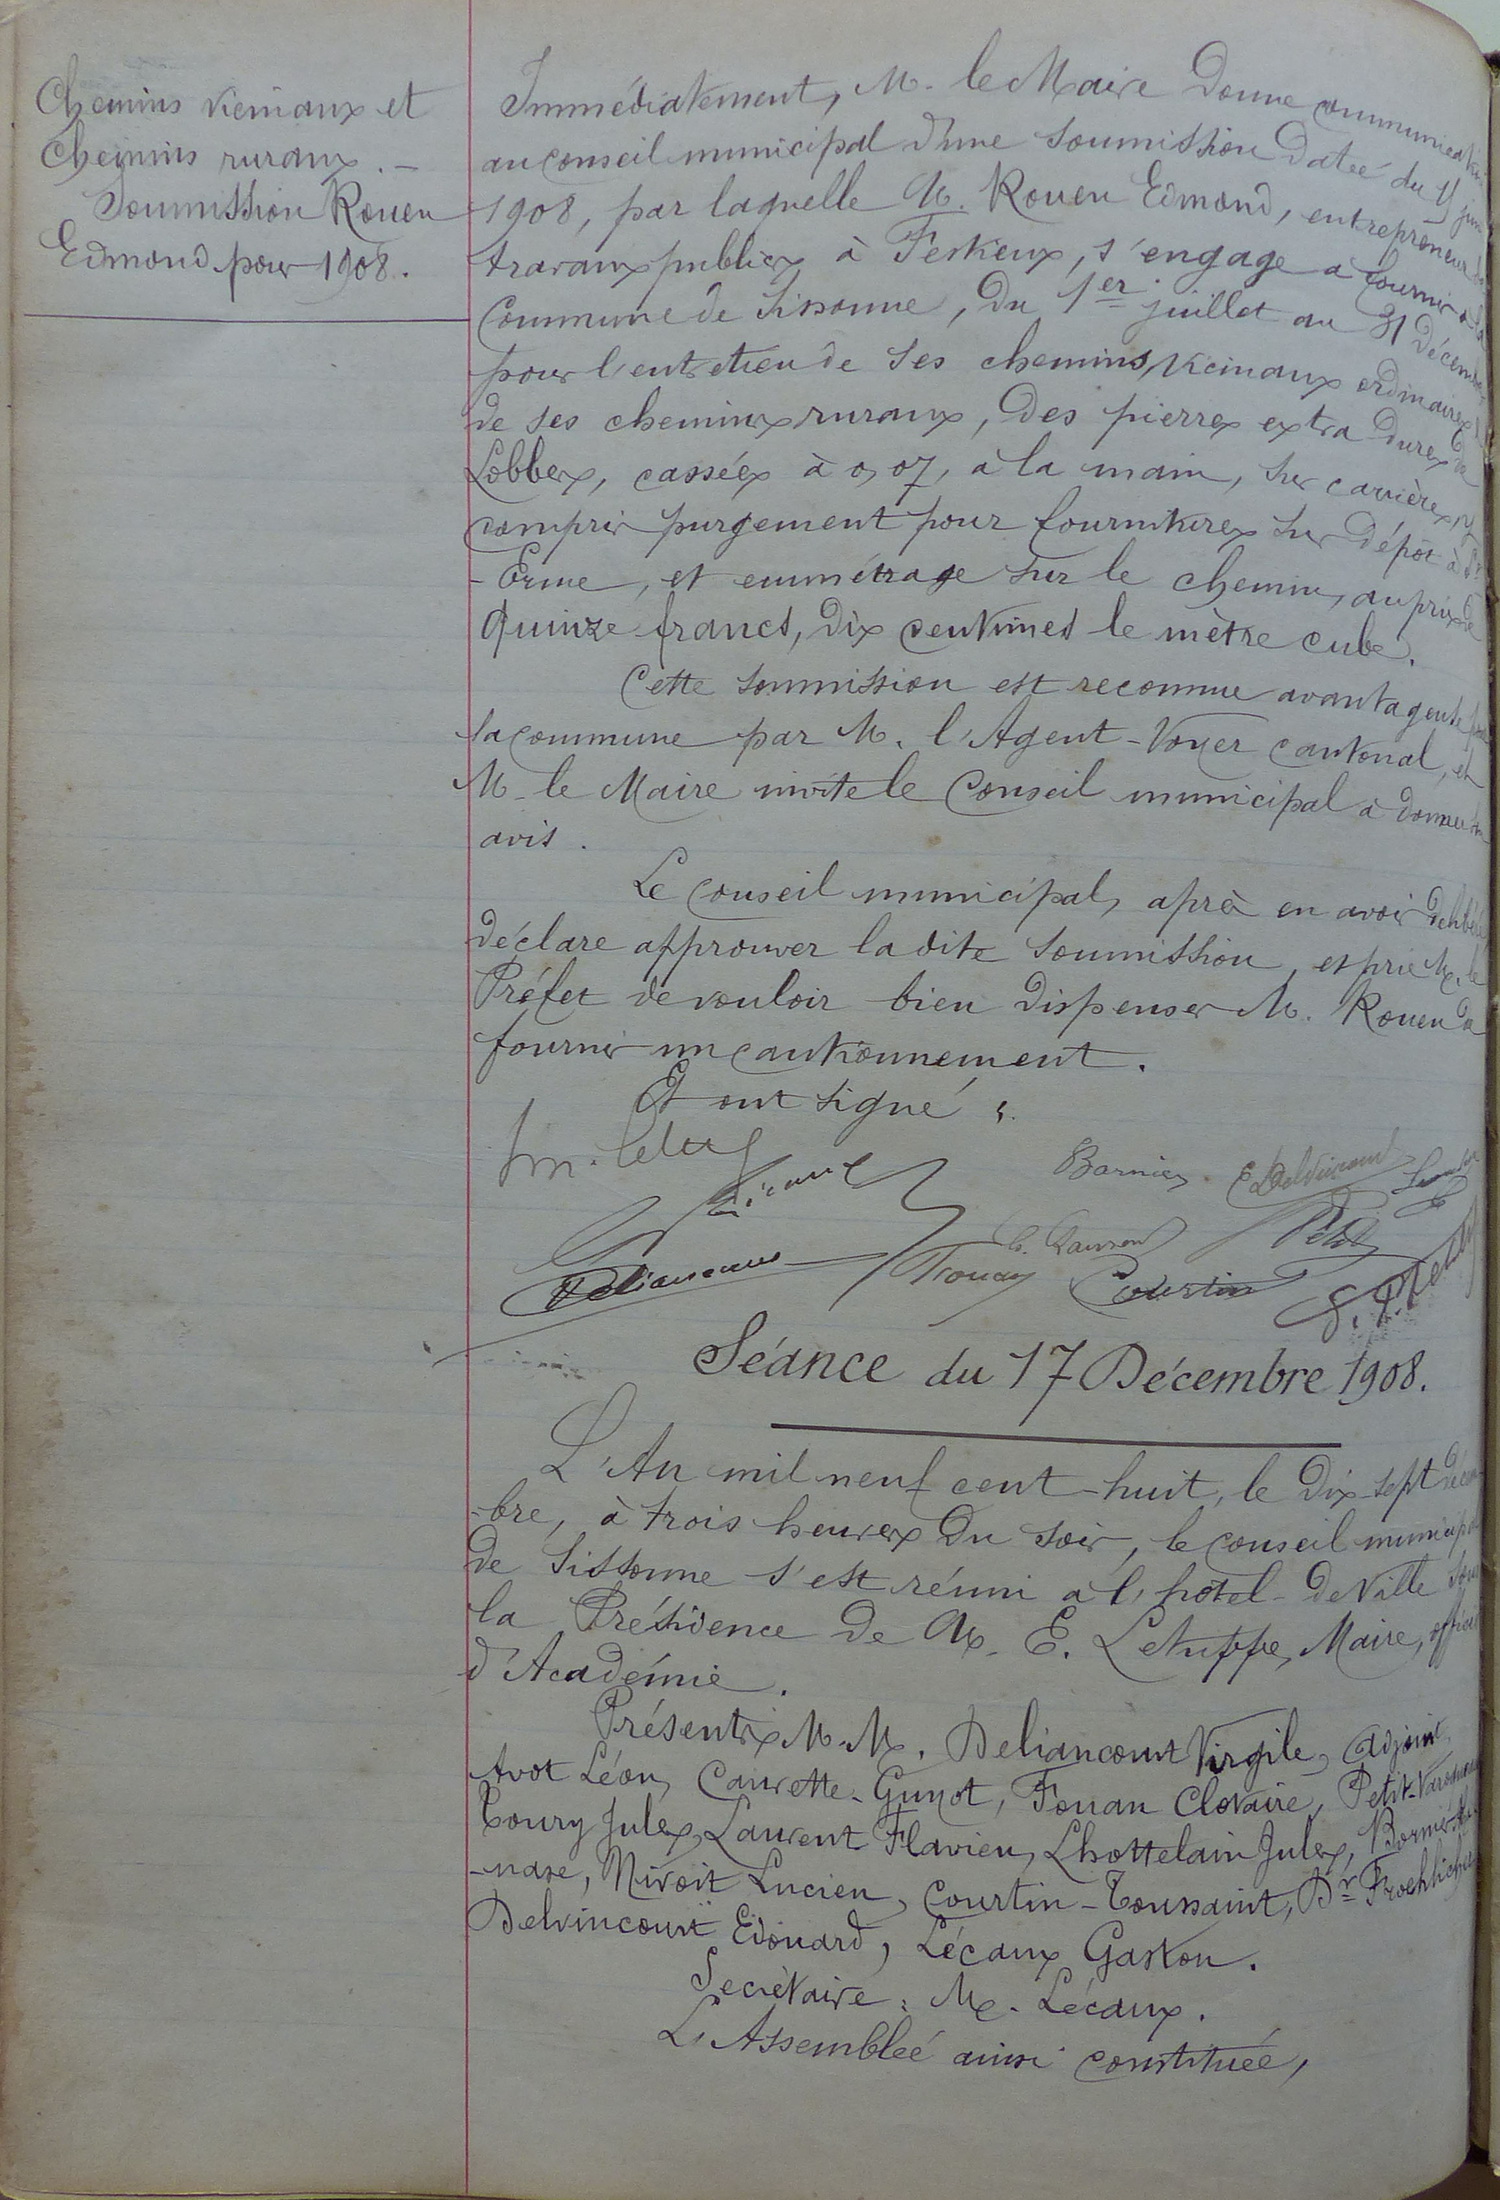 Chemins vicinaux et
Chemins ruraux. -
Soumission Rouen
Edmond pour 1908.
Immédiatement, M. le Maire donne communication
au conseil municipal d'une soumission datée du 15 juin
1908, par laquelle M. Rouen Edmond, entrepreneur de
travaux publics à Festieux, s'engage à fournir à la
Commune de Sissonne, du 1er juillet au 31 décembre
pour l'entretien de ses chemins vicinaux ordinaires et
de ses chemins ruraux, des pierres extra dures de
Lobbes, cassées à 0,07, à la main, sur carrières, y
compris purgement pour fournitures sur dépôt à St
-Erme, et emmétrage sur le chemin, au prix de
Quinze francs, dix centimes le mètre cube.
Cette soumission est reconnue avantageuse pour
la commune par M. l'Agent-Voyer cantonal, et
M. le Maire invite le Conseil municipal à donner son
avis.
Le Conseil municipal, après en avoir délibéré,
déclare approuver la dite soumission, et prie M. le
Préfet de vouloir bien dispenser M. Rouen de
fournir un cautionnement.
Et ont signé :
Bornier E. Delvincourt
Lécaux
Deliancourt Fouan G. Laurent Courtin Petit
Séance du 17 Décembre 1908.
L'An mil neuf cent-huit, le dix-sept décem
-bre, à trois heures du soir, le conseil municipal
de Sissonne s'est réuni à l'hôtel-de Ville sous
la Présidence de M. E. Letuppe, Maire, officier
d'Académie.
Présents M.M. Deliancourt Virgile, adjoint,
Avot Léon, Caurette-Guyot, Fouan Clotaire, Petit-
Toury Jules, Laurent Flavien, Lhottelain Jules, Bornier
-nase, Niroit Lucien, Courtin-Toussaint, Dr Froehlicher
Delvincourt Edouard, Lécaux Gaston.
Secrétaire : M. Lécaux.
L'Assemblée ainsi constituée,